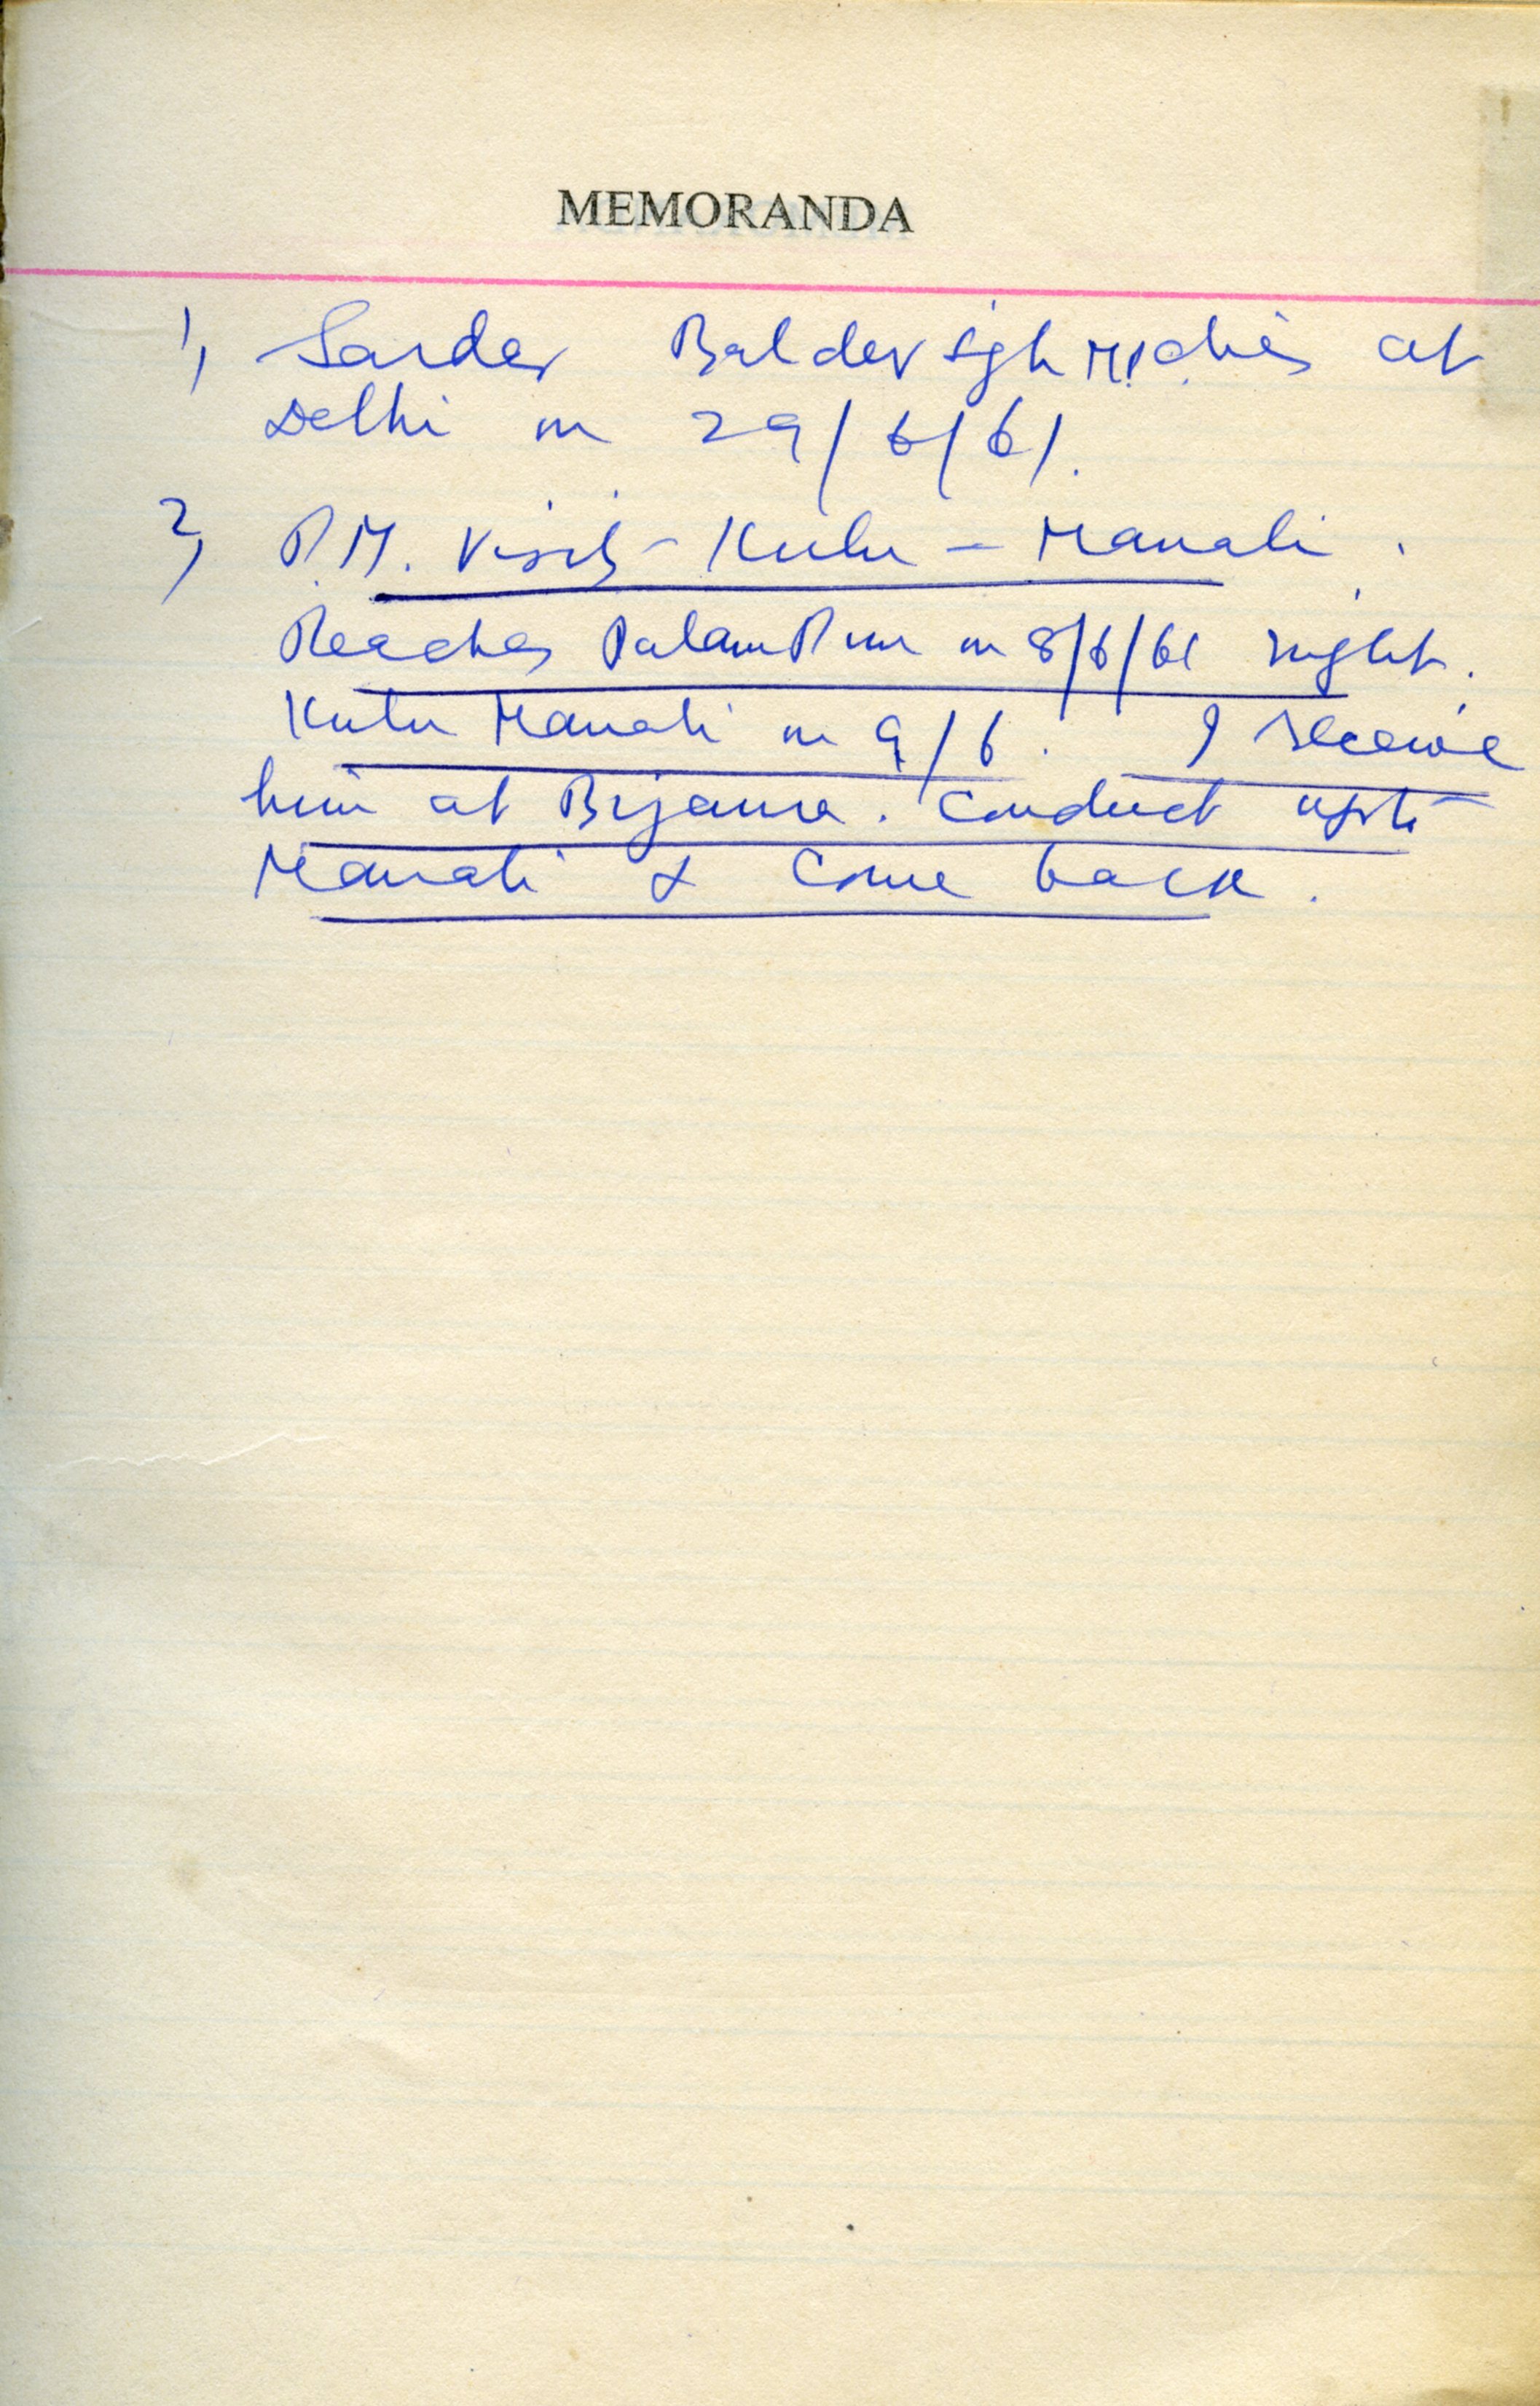 MEMORANDA
1, Sardar Baldev Sgh M.P. dies at
Delhi on 29/6/61.
2, P.M. Visit - Kulu - Manali.
Reaches PalamPur on 8/6/61 night.
Kulu Manali on 9/6. I receive
him at Bijaura. Conduct upto
Manali & come back.